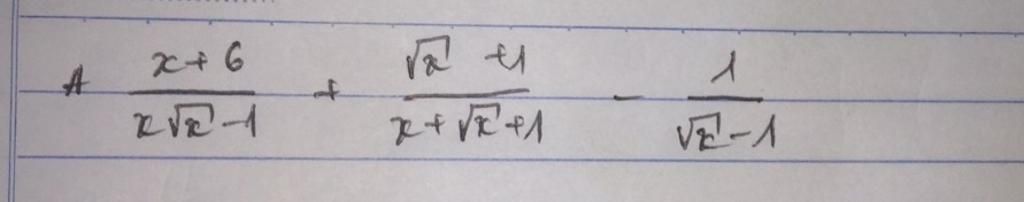 A \frac{x+6}{x\sqrt{x}-1} + \frac{\sqrt{x}+1}{x+\sqrt{x}+1} - \frac{1}{\sqrt{x}-1}